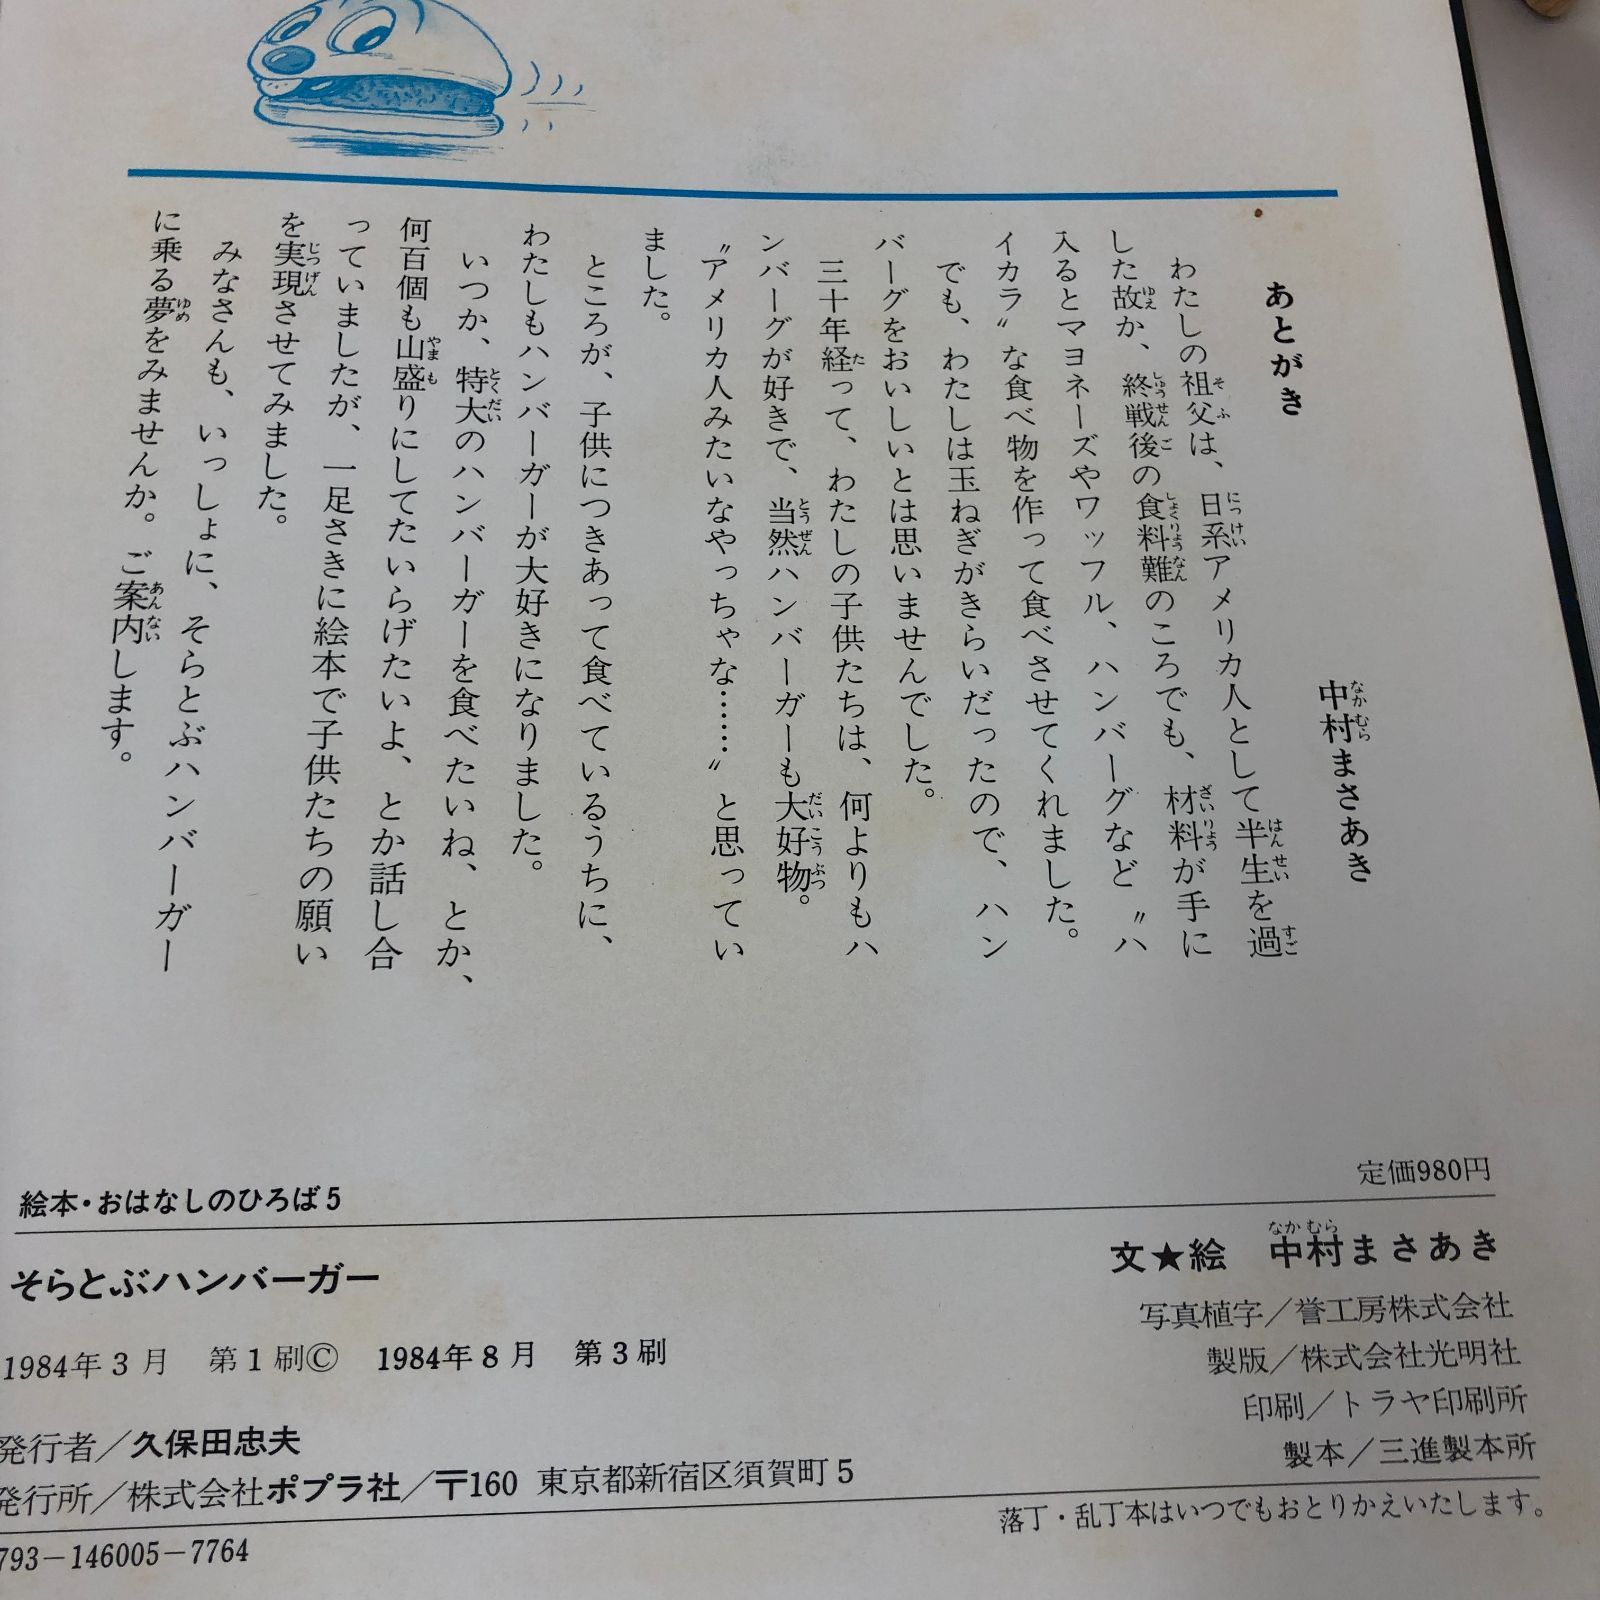 あとがき
中村まさあき
わたしの祖父は、日系アメリカ人として半生を過
した故か、終戦後の食料難のころでも、材料が手に
入るとマヨネーズやワッフル、ハンバーグなど〝ハ
イカラ〟な食べ物を作って食べさせてくれました。
でも、わたしは玉ねぎがきらいだったので、ハン
バーグをおいしいとは思いませんでした。
三十年経って、わたしの子供たちは、何よりもハ
ンバーグが好きで、当然ハンバーガーも大好物。
〝アメリカ人みたいなやっちゃな……〟と思ってい
ました。
ところが、子供につきあって食べているうちに、
わたしもハンバーガーが大好きになりました。
いつか、特大のハンバーガーを食べたいね、とか、
何百個も山盛りにしてたいらげたいよ、とか話し合
っていましたが、一足さきに絵本で子供たちの願い
を実現させてみました。
みなさんも、いっしょに、そらとぶハンバーガー
に乗る夢をみませんか。ご案内します。
定価980円
絵本・おはなしのひろば5
そらとぶハンバーガー
1984年3月 第1刷© 1984年8月 第3刷
発行者／久保田忠夫
発行所／株式会社ポプラ社／〒160 東京都新宿区須賀町5
793-146005-7764
文★絵 中村まさあき
写真植字／誉工房株式会社
製版／株式会社光明社
印刷／トラヤ印刷所
製本／三進製本所
落丁・乱丁本はいつでもおとりかえいたします。